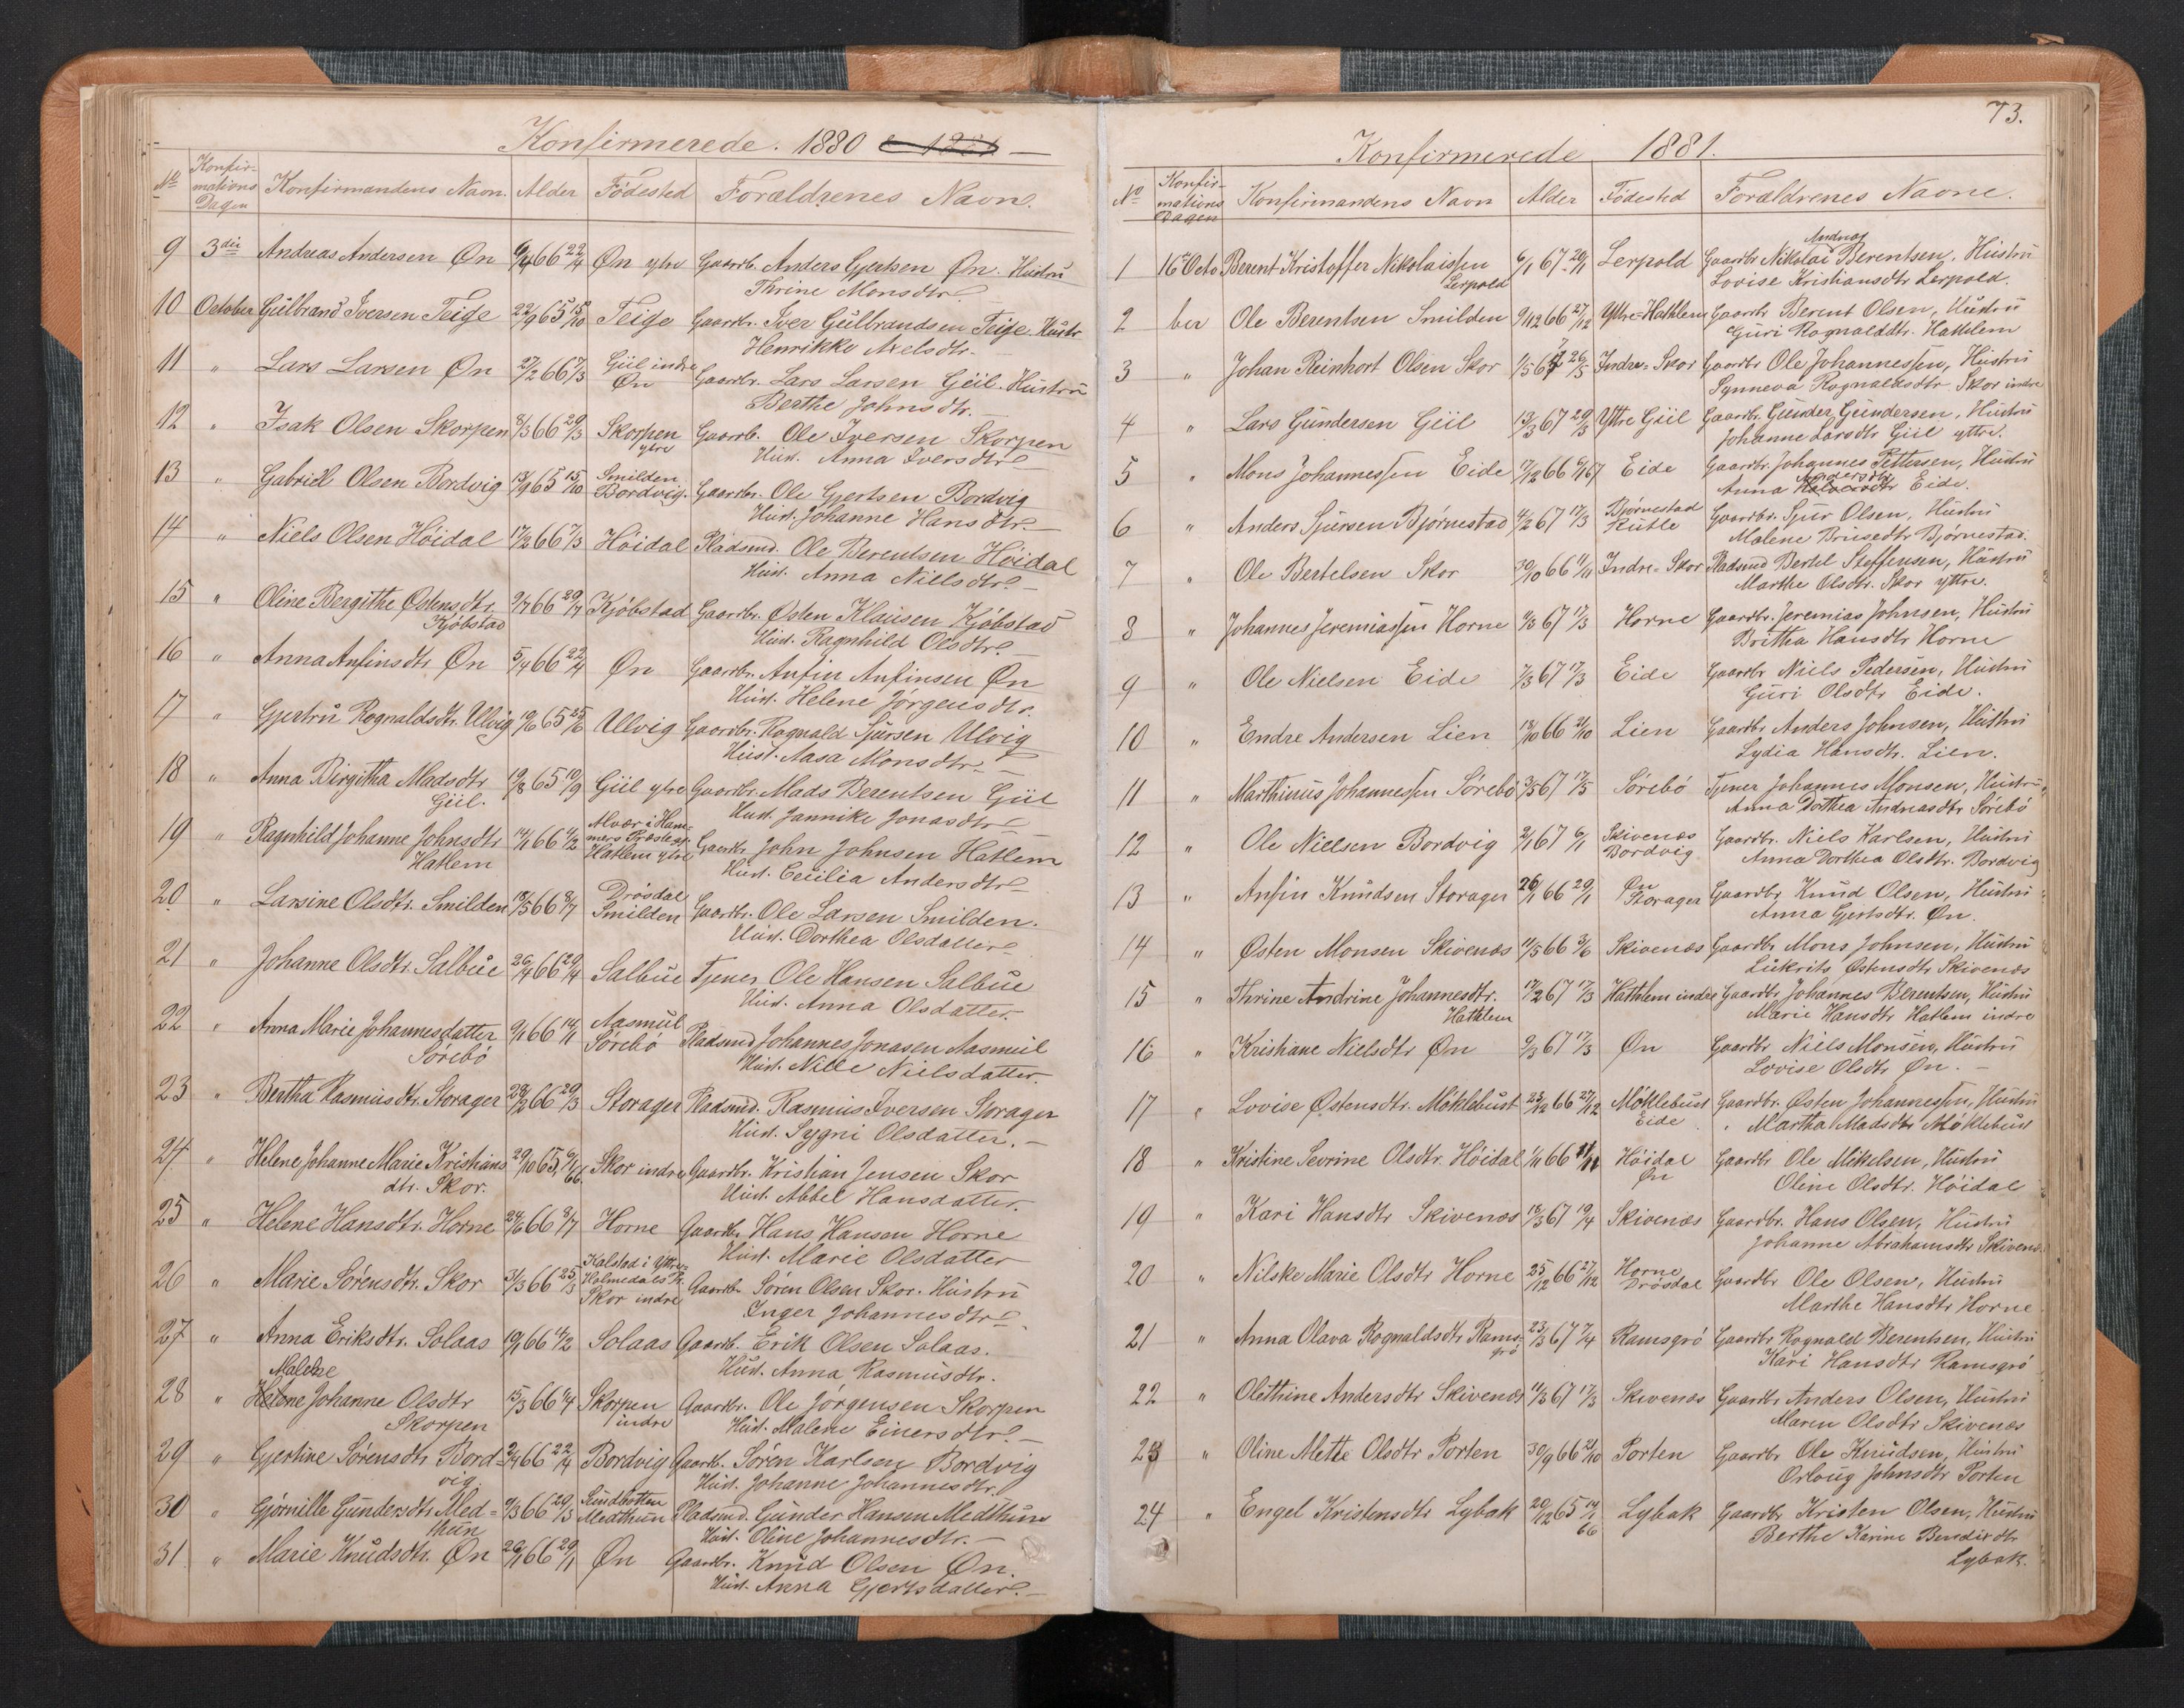 Konfirmerede. 1880
No Konfir-mations Dagen Konfirmandens Navn. Alder Födested Forældrenes Navn.
9 3die Andreas Andersen Øn 9/4 66 22/4 Øn ytre Gaardb. Anders Gjertsen Øn. Hustru
Thrine Monsdtr.
10 October Gulbrand Iversen Teige 22/9 65 15/10 Teige Gaardbr. Iver Gulbrandsen Teige. Hustr
Henrikke Axelsdtr.
11 " Lars Larsen Øn 27/2 66 7/3 Giil indre
Øn Gaardbr. Lars Larsen Giil. Hustru
Berthe Johnsdtr.
12 " Isak Olsen Skorpen 8/3 66 29/3 Skorpen
ytre Gaardb. Ole Iversen Skorpen
Hust. Anna Iversdtr
13 " Gabriel Olsen Bordvig 13/9 65 15/10 Smilden
Bordvig. Gaardbr. Ole Gjertsen Bordvig
Hust. Johanne Hansdtr.
14 " Niels Olsen Höidal 17/2 66 7/3 Höidal Pladsmd. Ole Berentsen Höidal
Hust. Anna Nielsdtr.
15 " Oline Bergithe Østensdtr.
Kjöbstad 9/7 66 29/7 Kjöbstad Gaardbr. Østen Klausen Kjöbstad
Hust. Ragnhild Olsdtr.
16 " Anna Anfinsdtr Øn 5/4 66 22/4 Øn Gaardbr. Anfin Anfinsen Øn
Hust. Helene Jörgensdtr.
17 " Gjertru Rognaldsdtr. Ulvig 19/6 65 25/6 Ulvig Gaardbr. Rognald Sjursen Ulvig
Hust. Aasa Monsdtr.
18 " Anna Birgitha Madsdtr
Giil. 19/8 65 10/9 Giil ytre Gaardbr. Mads Berentsen Giil
Hust. Jannike Jonasdtr
19 " Ragnhild Johanne Johnsdtr
Hatlem 14/1 66 4/2 Alvær i Ham-
mers Præstegj.
Hatlem ytre Gaardbr. John Johnsen Hatlem
Hust. Cecilia Andersdtr
20 " Larsine Olsdtr. Smilden 18/5 66 8/7 Drösdal
Smilden Gaardbr. Ole Larsen Smilden.
Hust. Dorthea Olsdatter
21 " Johanne Olsdtr. Salbue 26/4 66 29/4 Salbue Tjener Ole Hansen Salbue
Hust. Anna Olsdatter.
22 " Anna Marie Johannesdatter
Sörebö 9/1 66 14/1 Aasmul
Sörebö Pladsmd Johannes Jonasen Aasmul
Hust. Nille Nielsdatter.
23 " Bertha Rasmusdtr. Storager 28/2 66 29/3 Storager Pladsmd. Rasmus Iversen Storager
Hust. Sygni Olsdatter.
24 " Helene Johanne Marie Kristians
dtr. Skor. 29/10 65, 6/1 66. Skor indre Gaardbr. Kristian Jensen Skor
Hust. Abbel Hansdatter.
25 " Helene Hansdtr. Horne 24/6 66 8/7 Horne Gaardbr. Hans Hansen Horne
Hust. Marie Olsdatter
26 " Marie Sörensdtr. Skor 3/3 66 25/3 Kalstad i Yttre-
Holmedals P.
Skor indre Gaardbr. Sören Olsen Skor. Hustru
Inger Johannesdtr
27 " Anna Eriksdtr. Solaas 19/1 66 4/2 Solaas Gaardb. Erik Olsen Solaas.
Hust. Anna Rasmusdtr.
Malene
28 " Helene Johanne Olsdtr
Skorpen 15/3 66 1/4 Skorpen
indre Gaardbr. Ole Jörgensen Skorpen
Hust. Malene Einersdtr.
29 " Gjertine Sörensdtr Bord-
vig 2/4 66 22/4 Bordvig Gaardb. Sören Karlsen Bordvig
Hust. Johanne Johannesdtr.
30 " Gjörnille Gundersdtr Med=
thun 7/3 66 29/3 Rundbotten
Medthun Pladsmd. Gunder Hansen Medthun
Hust. Oline Johannesdtr.
31 " Marie Knudsdtr. Øn 26/1 66 29/1 Øn Gaardbr. Knud Olsen Øn.
Hust. Anna Gjertsdatter.
73.
Konfirmerede 1881.
No Konfir-mations Dagen Konfirmandens Navn Alder Födested Forældrenes Navne.
1 16de Octo Berent Kristoffer Nikolaissen
Lerpold 6/1 67 20/1 Lerpold Gaardbr Nikolai Andreas Berentsen, Hustru
Lovise Kristiansdtr Lerpold.
2 ber Ole Berentsen Smilden 9/12 66 27/12 Yttre=Hathlem Gaardbr Berent Olsen, Hustru
Guri Rognalddtr. Hathlem
3 " Johan Reinhort Olsen Skor 1/5 67 26/5 Indre=Skor Gaardbr Ole Johannessen, Hustru
Synneva Rognaldsdtr Skor indre
4 " Lars Gundersen Giil 13/3 67 29/3 Yttre Giil Gaardbr. Gunder Gundersen, Hustru
Johanne Larsdtr Giil yttre.
5 " Mons Johannessen Eide 17/12 66 6/1 67 Eide Gaardbr. Johannes Pettersen, Hustru
Anna Andersdtr Eide.
6 " Anders Sjursen Björnestad 4/2 67 17/3 Björnestad
Rutle Gaardbr. Sjur Olsen, Hustru
Malene Brusedtr Björnestad.
7 " Ole Bertelsen Skor 30/10 66 11/11 Indre=Skor Pladsmd Bertel Steffensen, Hustru
Marthe Olsdtr. Skor yttre.
8 " Johannes Jeremiassen Horne 11/3 67 17/3 Horne Gaardbr. Jeremias Johnsen, Hustru
Britha Hansdtr Horne
9 " Ole Nielsen Eide 7/3 67 17/3 Eide Gaardbr Niels Pedersen, Hustru
Guri Olsdtr Eide.
10 " Endre Andersen Lien 13/10 66 21/10 Lien Gaardbr Anders Johnsen, Hustru
Lydia Hansdtr. Lien.
11 " Marthinus Johannessen Sörebö 3/5 67 17/5 Sörebö Tjener Johannes Monsen, Hustru
Anna Dorthea Andreasdtr Sörebö
12 " Ole Nielsen Bordvig 2/1 67 6/1 Skivenæs
Bordvig Gaardbr. Niels Karlsen, Hustru
Anna Dorthea Olsdtr. Bordvig
13 " Anfin Knudsen Storager 26/1 66 29/1 Øn
Storager Gaardbr Knud Olsen, Hustru
Anna Gjertsdtr. Øn.
14 " Østen Monsen Skivenæs 11/5 66 3/6 Skivenæs Gaardbr Mons Johnsen, Hustru
Lukrits Østensdtr Skivenæs
15 " Thrine Andrine Johannesdtr.
Hathlem 17/2 67 17/3 Hathlem indre Gaardbr Johannes Berentsen, Hustru
Marie Hansdtr Hatlem indre
16 " Kristiane Nielsdtr Øn 9/3 67 17/3 Øn Gaardbr Niels Monsen, Hustru
Lovise Olsdtr Øn.
17 " Lovise Østensdtr. Möklebust 23/12 66 27/12 Möklebust
Eide Gaardbr. Østen Johannessen, Hustru
Martha Madsdtr Möklebust
18 " Kristine Sevrine Olsdtr. Höidal 1/11 66 11/11 Höidal
Øn Gaardbr Ole Mikelsen, Hustru
Oline Olsdtr. Höidal
19 " Kari Hansdtr Skivenæs 18/3 67 19/4 Skivenæs Gaardbr. Hans Olsen, Hustru
Johanne Abrahamsdtr Skivenæs.
20 " Nilske Marie Olsdtr Horne 25/12 66 27/12 Horne
Drösdal Gaardbr Ole Olsen, Hustru
Marthe Hansdtr Horne
21 " Anna Olava Rognaldsdtr Rams-
grö 23/3 67 7/4 Ramsgrö Gaardbr. Rognald Berentsen, Hustru
Kari Hansdtr Ramsgrö
22 " Olethine Andersdtr Skivenæs 11/3 67 17/3 Skivenæs Gaardbr Anders Olsen, Hustru
Maren Olsdtr Skivenæs
23 " Oline Mette Olsdtr Porten 30/9 66 21/10 Porten Gaardbr Ole Knudsen, Hustru
Orloug Johnsdtr Porten
24 " Engel Kristensdtr Lybak 20/12 65 14/1 66 Lybak Gaardbr Kristen Olsen, Hustru
Berthe Karine Bendixdtr
Lybak.